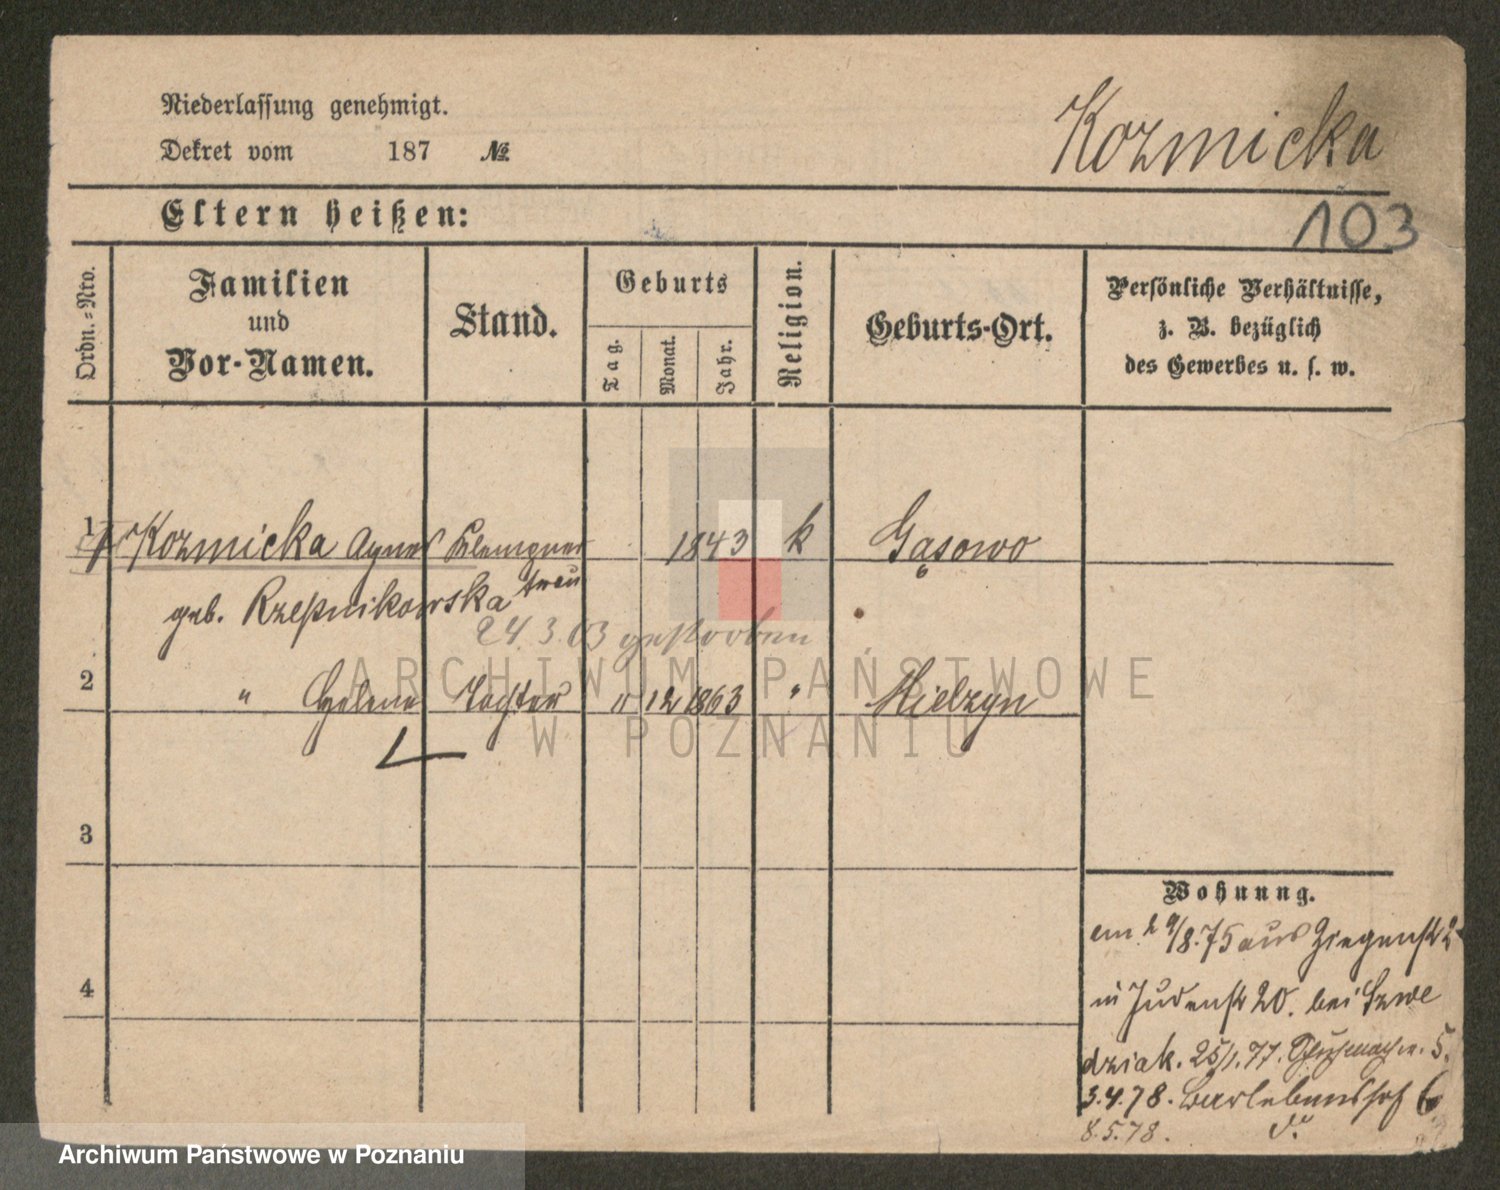 Niederlassung genehmigt.
Dekret vom 187 №
Kozmicka
Eltern heißen:
103
Ordn.=Nro.
Familien
und
Vor-Namen.
Stand.
Geburts
Tag.
Monat.
Jahr.
Religion.
Geburts-Ort.
Persönliche Verhältnisse,
z. B. bezüglich
des Gewerbes u. s. w.
1 Kozmicka Agnes Klempner 1843 k Gąsowo
geb. Rzepnikowska frau
24.3.03 gestorben
2 " Helene Tochter 12 1863 " Mielzyn
ARCHIWUM PAŃSTWOWE
W POZNANIU
3
4
Wohnung.
am 29/8.75 aus Ziegenstr 2
in Judenstr 20. bei Szwe
dziak. 25/1.77. Schuhmacherstr. 5.
3.4.78. Barlebenshof 6
8.5.78.
Archiwum Państwowe w Poznaniu